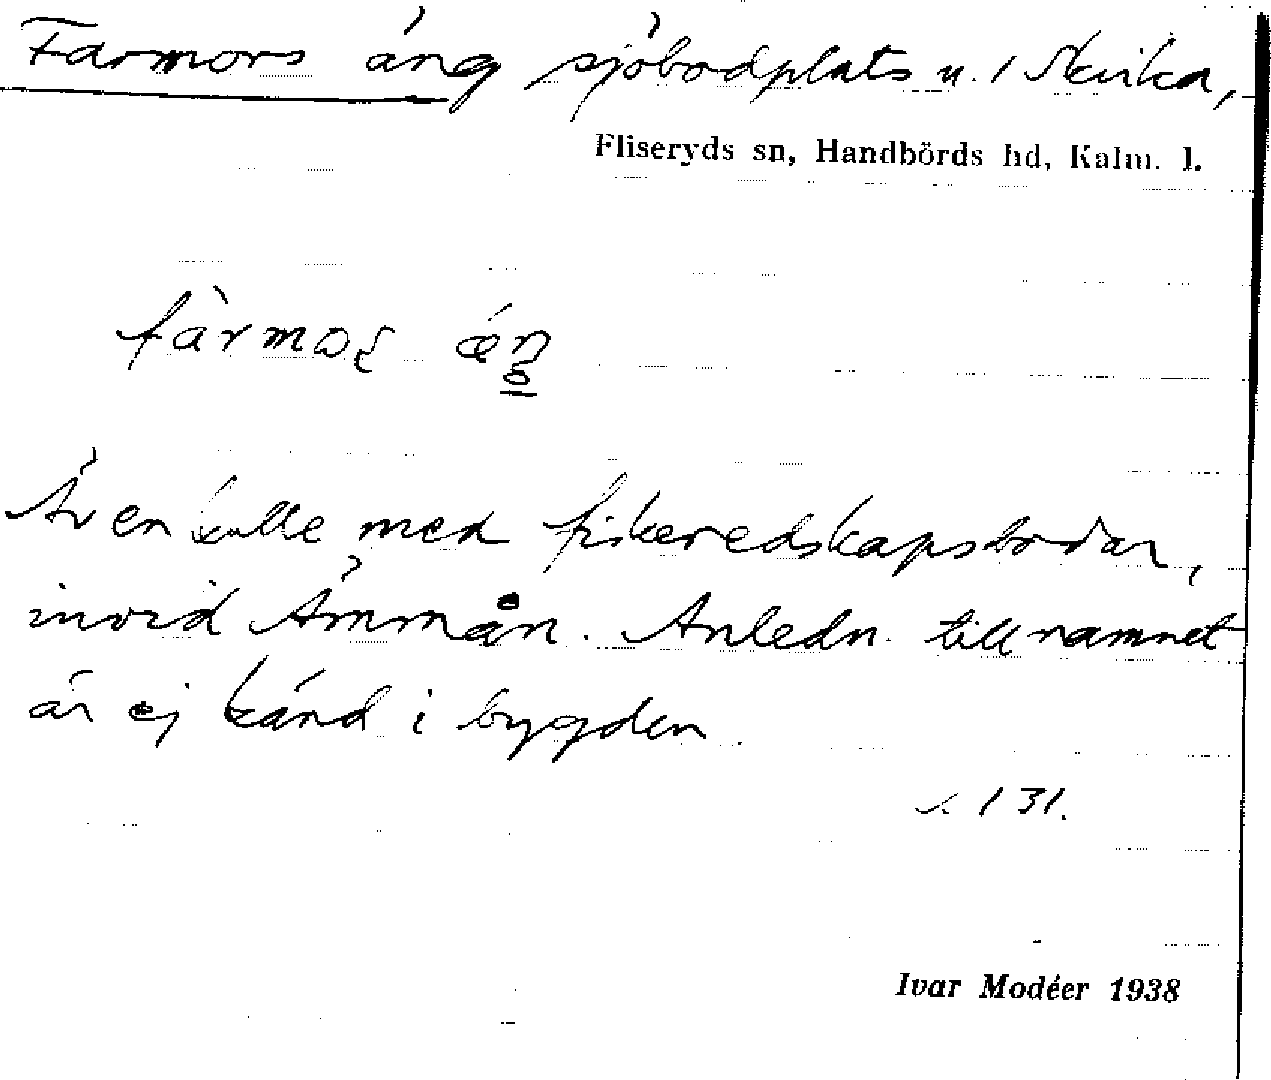 Farmors äng sjöbodplats u. 1 Skvika,
Fliseryds sn, Handbörds hd, Kalm. l.
fàrmoʂ
Är en kulle med fiskeredskapsbodar,
invid Ämmån. Anledn. till namnet
är ej känd i bygden.
s. 131.
Ivar Modéer 1938